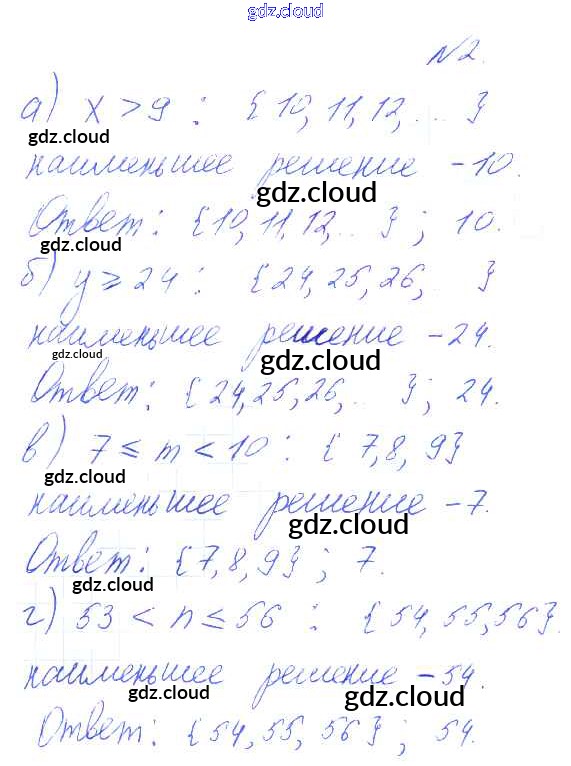 gdz.cloud
№2.
а) x > 9 : {10, 11, 12, ... }
gdz.cloud
наименьшее решение - 10.
gdz.cloud
Ответ: {10, 11, 12, .. } ; 10.
gdz.cloud
б) y ⩾ 24 : {24, 25, 26, .. }
gdz.cloud
наименьшее решение - 24.
gdz.cloud
gdz.cloud
Ответ: {24, 25, 26, .. } ; 24.
gdz.cloud
в) 7 ≤ m < 10 : {7, 8, 9}
gdz.cloud
наименьшее решение - 7.
gdz.cloud
Ответ: {7, 8, 9} ; 7.
gdz.cloud
г) 53 < n ≤ 56 : {54, 55, 56}.
gdz.cloud
наименьшее решение - 54.
gdz.cloud
gdz.cloud
Ответ: {54, 55, 56} ; 54.
gdz.cloud